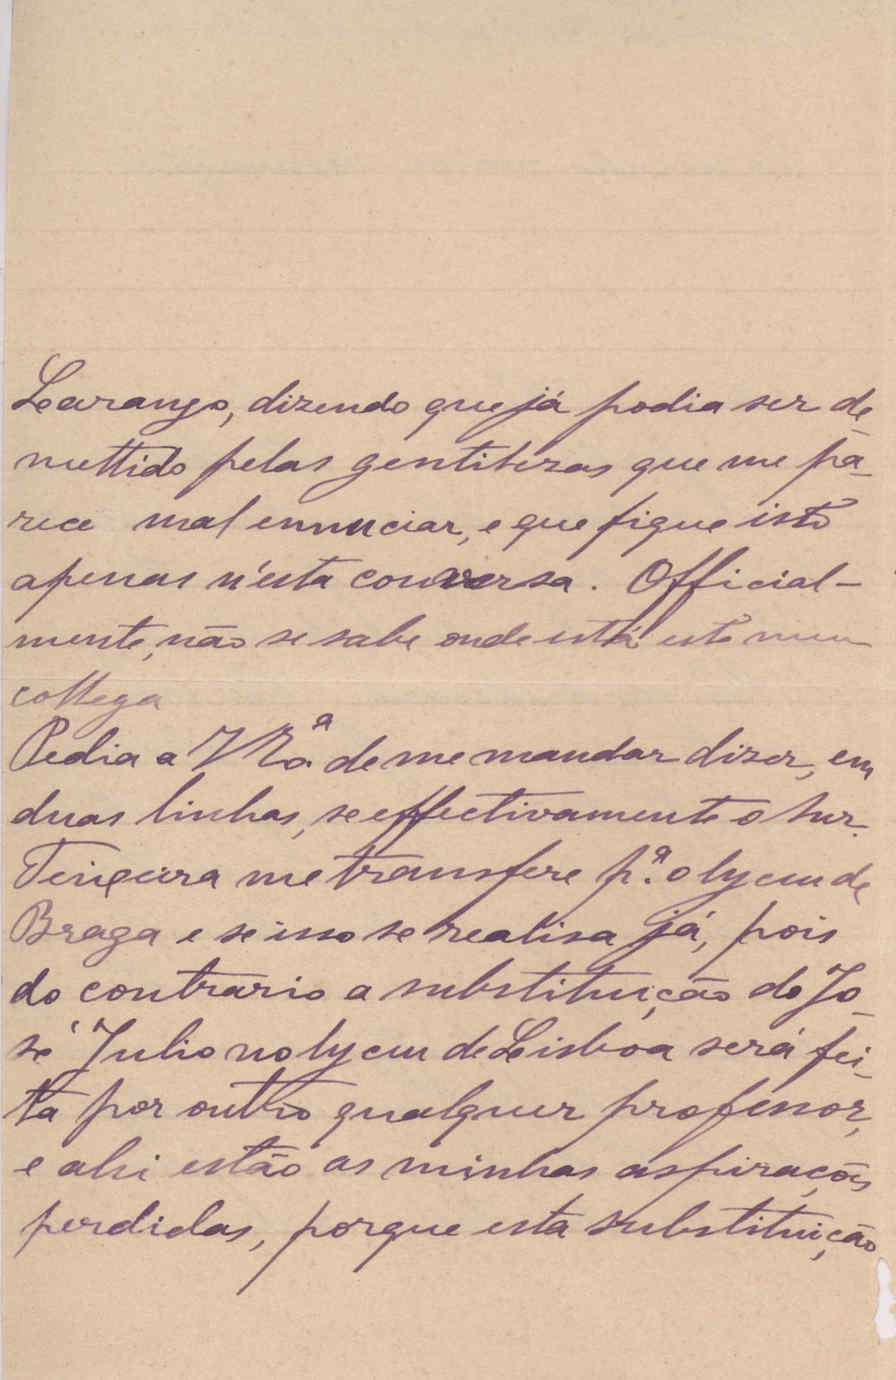 Laranjo, dizendo que já podia ser de-
mettido pelas gentilezas que me pa-
rece mal ennunciar, e que fique isto
apenas n'esta conversa. Official-
mente, não se sabe onde está este meu
collega
Pedia a V Ex.ª de me mandar dizer, em
duas linhas, se effectivamente o Snr.
Teixeira me transfere p.ª o lyceu de
Braga e se isso se realisa já, pois
do contrario a substituição do Jo-
sé Julio no lyceu de Lisboa será fei-
ta por outro qualquer professor,
e ahi estão as minhas aspirações
perdidas, porque esta substituição